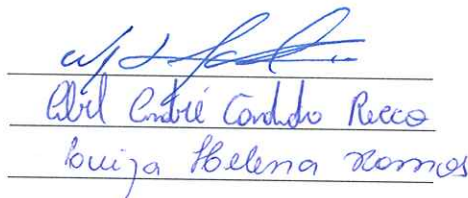 Abel André Candido Recco
Luiza Helena Ramos